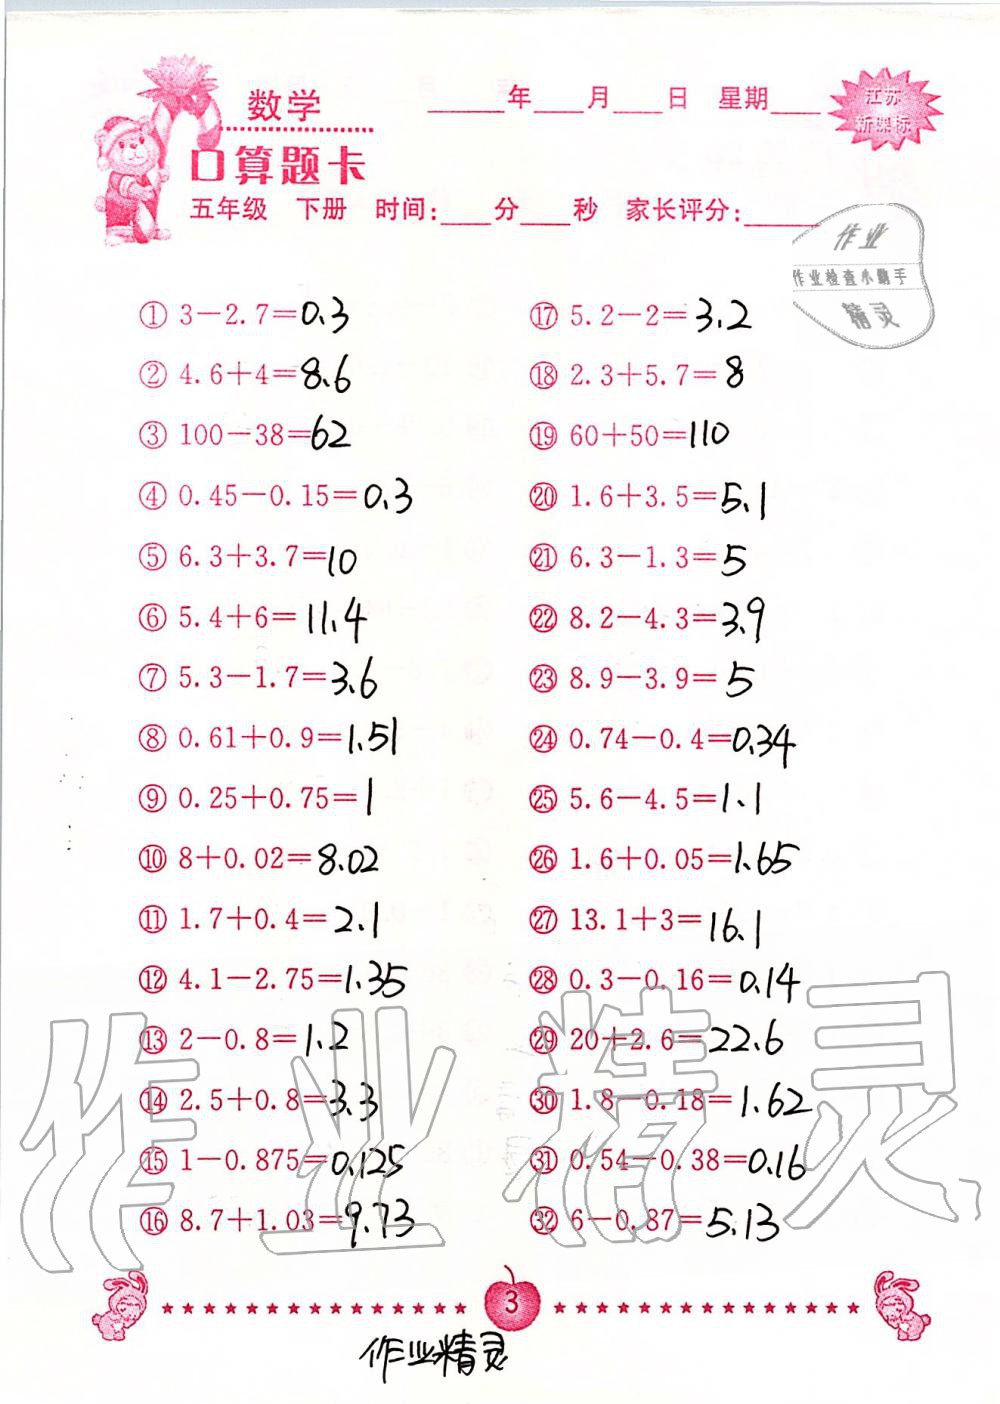 数学
____年___月___日 星期___
江苏
新课标
口算题卡
五年级 下册 时间:___分___秒 家长评分:____
作业
作业检查小助手
精灵
① 3－2.7＝0.3
② 4.6＋4＝8.6
③ 100－38＝62
④ 0.45－0.15＝0.3
⑤ 6.3＋3.7＝10
⑥ 5.4＋6＝11.4
⑦ 5.3－1.7＝3.6
⑧ 0.61＋0.9＝1.51
⑨ 0.25＋0.75＝1
⑩ 8＋0.02＝8.02
⑪ 1.7＋0.4＝2.1
⑫ 4.1－2.75＝1.35
⑬ 2－0.8＝1.2
⑭ 2.5＋0.8＝3.3
⑮ 1－0.875＝0.125
⑯ 8.7＋1.03＝9.73
⑰ 5.2－2＝3.2
⑱ 2.3＋5.7＝8
⑲ 60＋50＝110
⑳ 1.6＋3.5＝5.1
㉑ 6.3－1.3＝5
㉒ 8.2－4.3＝3.9
㉓ 8.9－3.9＝5
㉔ 0.74－0.4＝0.34
㉕ 5.6－4.5＝1.1
㉖ 1.6＋0.05＝1.65
㉗ 13.1＋3＝16.1
㉘ 0.3－0.16＝0.14
㉙ 20＋2.6＝22.6
㉚ 1.8－0.18＝1.62
㉛ 0.54－0.38＝0.16
㉜ 6－0.87＝5.13
作业精灵
3
作业精灵